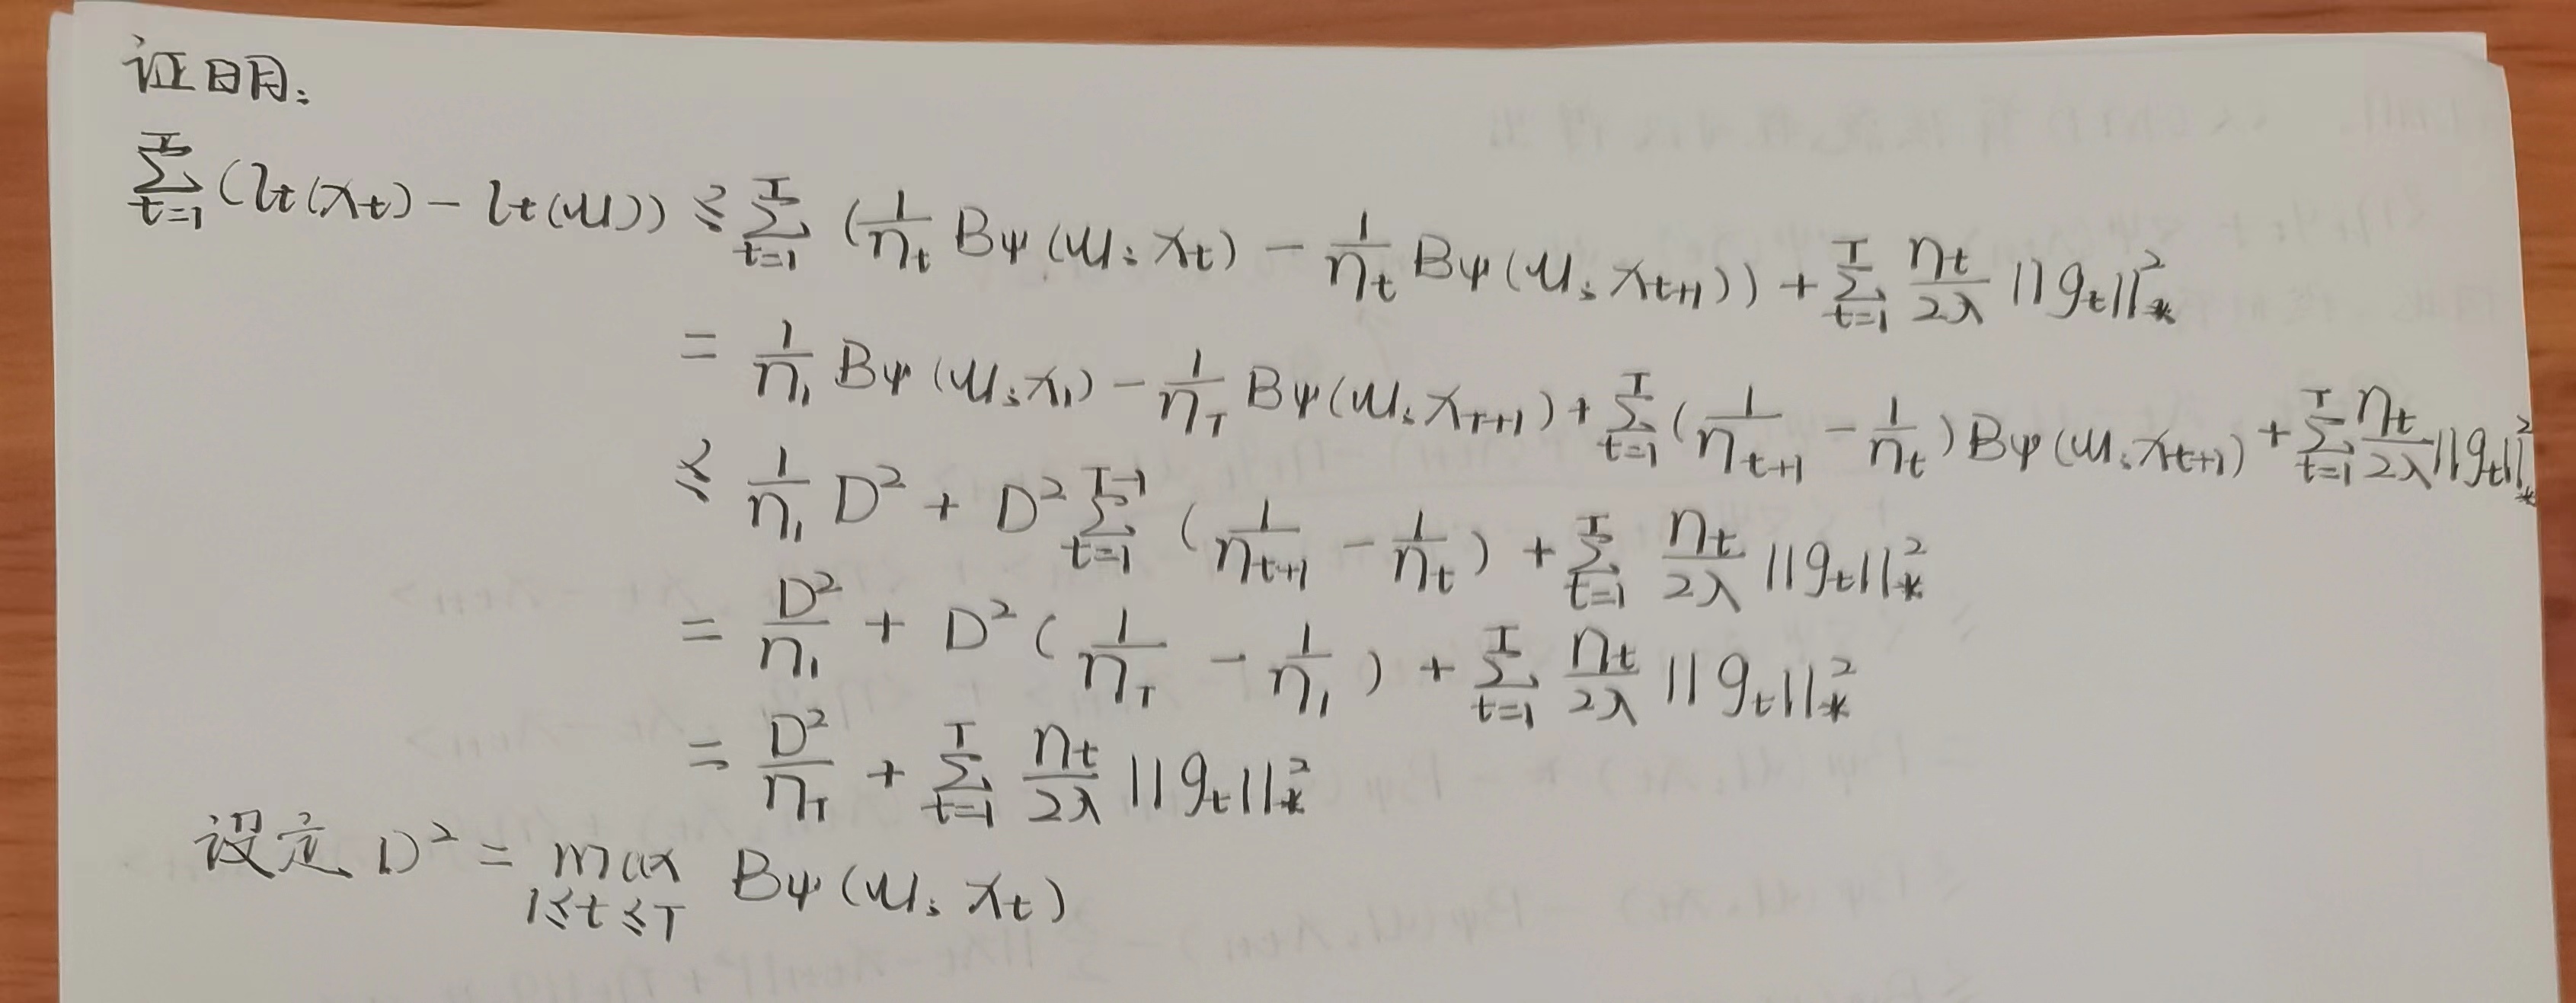 证明:
$\sum_{t=1}^{T} (l_t(x_t) - l_t(u)) \leq \sum_{t=1}^{T} (\frac{1}{\eta_t} B_\psi(u; x_t) - \frac{1}{\eta_t} B_\psi(u; x_{t+1})) + \sum_{t=1}^{T} \frac{\eta_t}{2\lambda} ||g_t||_*^2$
$= \frac{1}{\eta_1} B_\psi(u; x_1) - \frac{1}{\eta_T} B_\psi(u; x_{T+1}) + \sum_{t=1}^{T} (\frac{1}{\eta_{t+1}} - \frac{1}{\eta_t}) B_\psi(u; x_{t+1}) + \sum_{t=1}^{T} \frac{\eta_t}{2\lambda} ||g_t||_*^2$
$\leq \frac{1}{\eta_1} D^2 + D^2 \sum_{t=1}^{T-1} (\frac{1}{\eta_{t+1}} - \frac{1}{\eta_t}) + \sum_{t=1}^{T} \frac{\eta_t}{2\lambda} ||g_t||_*^2$
$= \frac{D^2}{\eta_1} + D^2 (\frac{1}{\eta_T} - \frac{1}{\eta_1}) + \sum_{t=1}^{T} \frac{\eta_t}{2\lambda} ||g_t||_*^2$
$= \frac{D^2}{\eta_T} + \sum_{t=1}^{T} \frac{\eta_t}{2\lambda} ||g_t||_*^2$
设定 $D^2 = \max_{1 \leq t \leq T} B_\psi(u; x_t)$